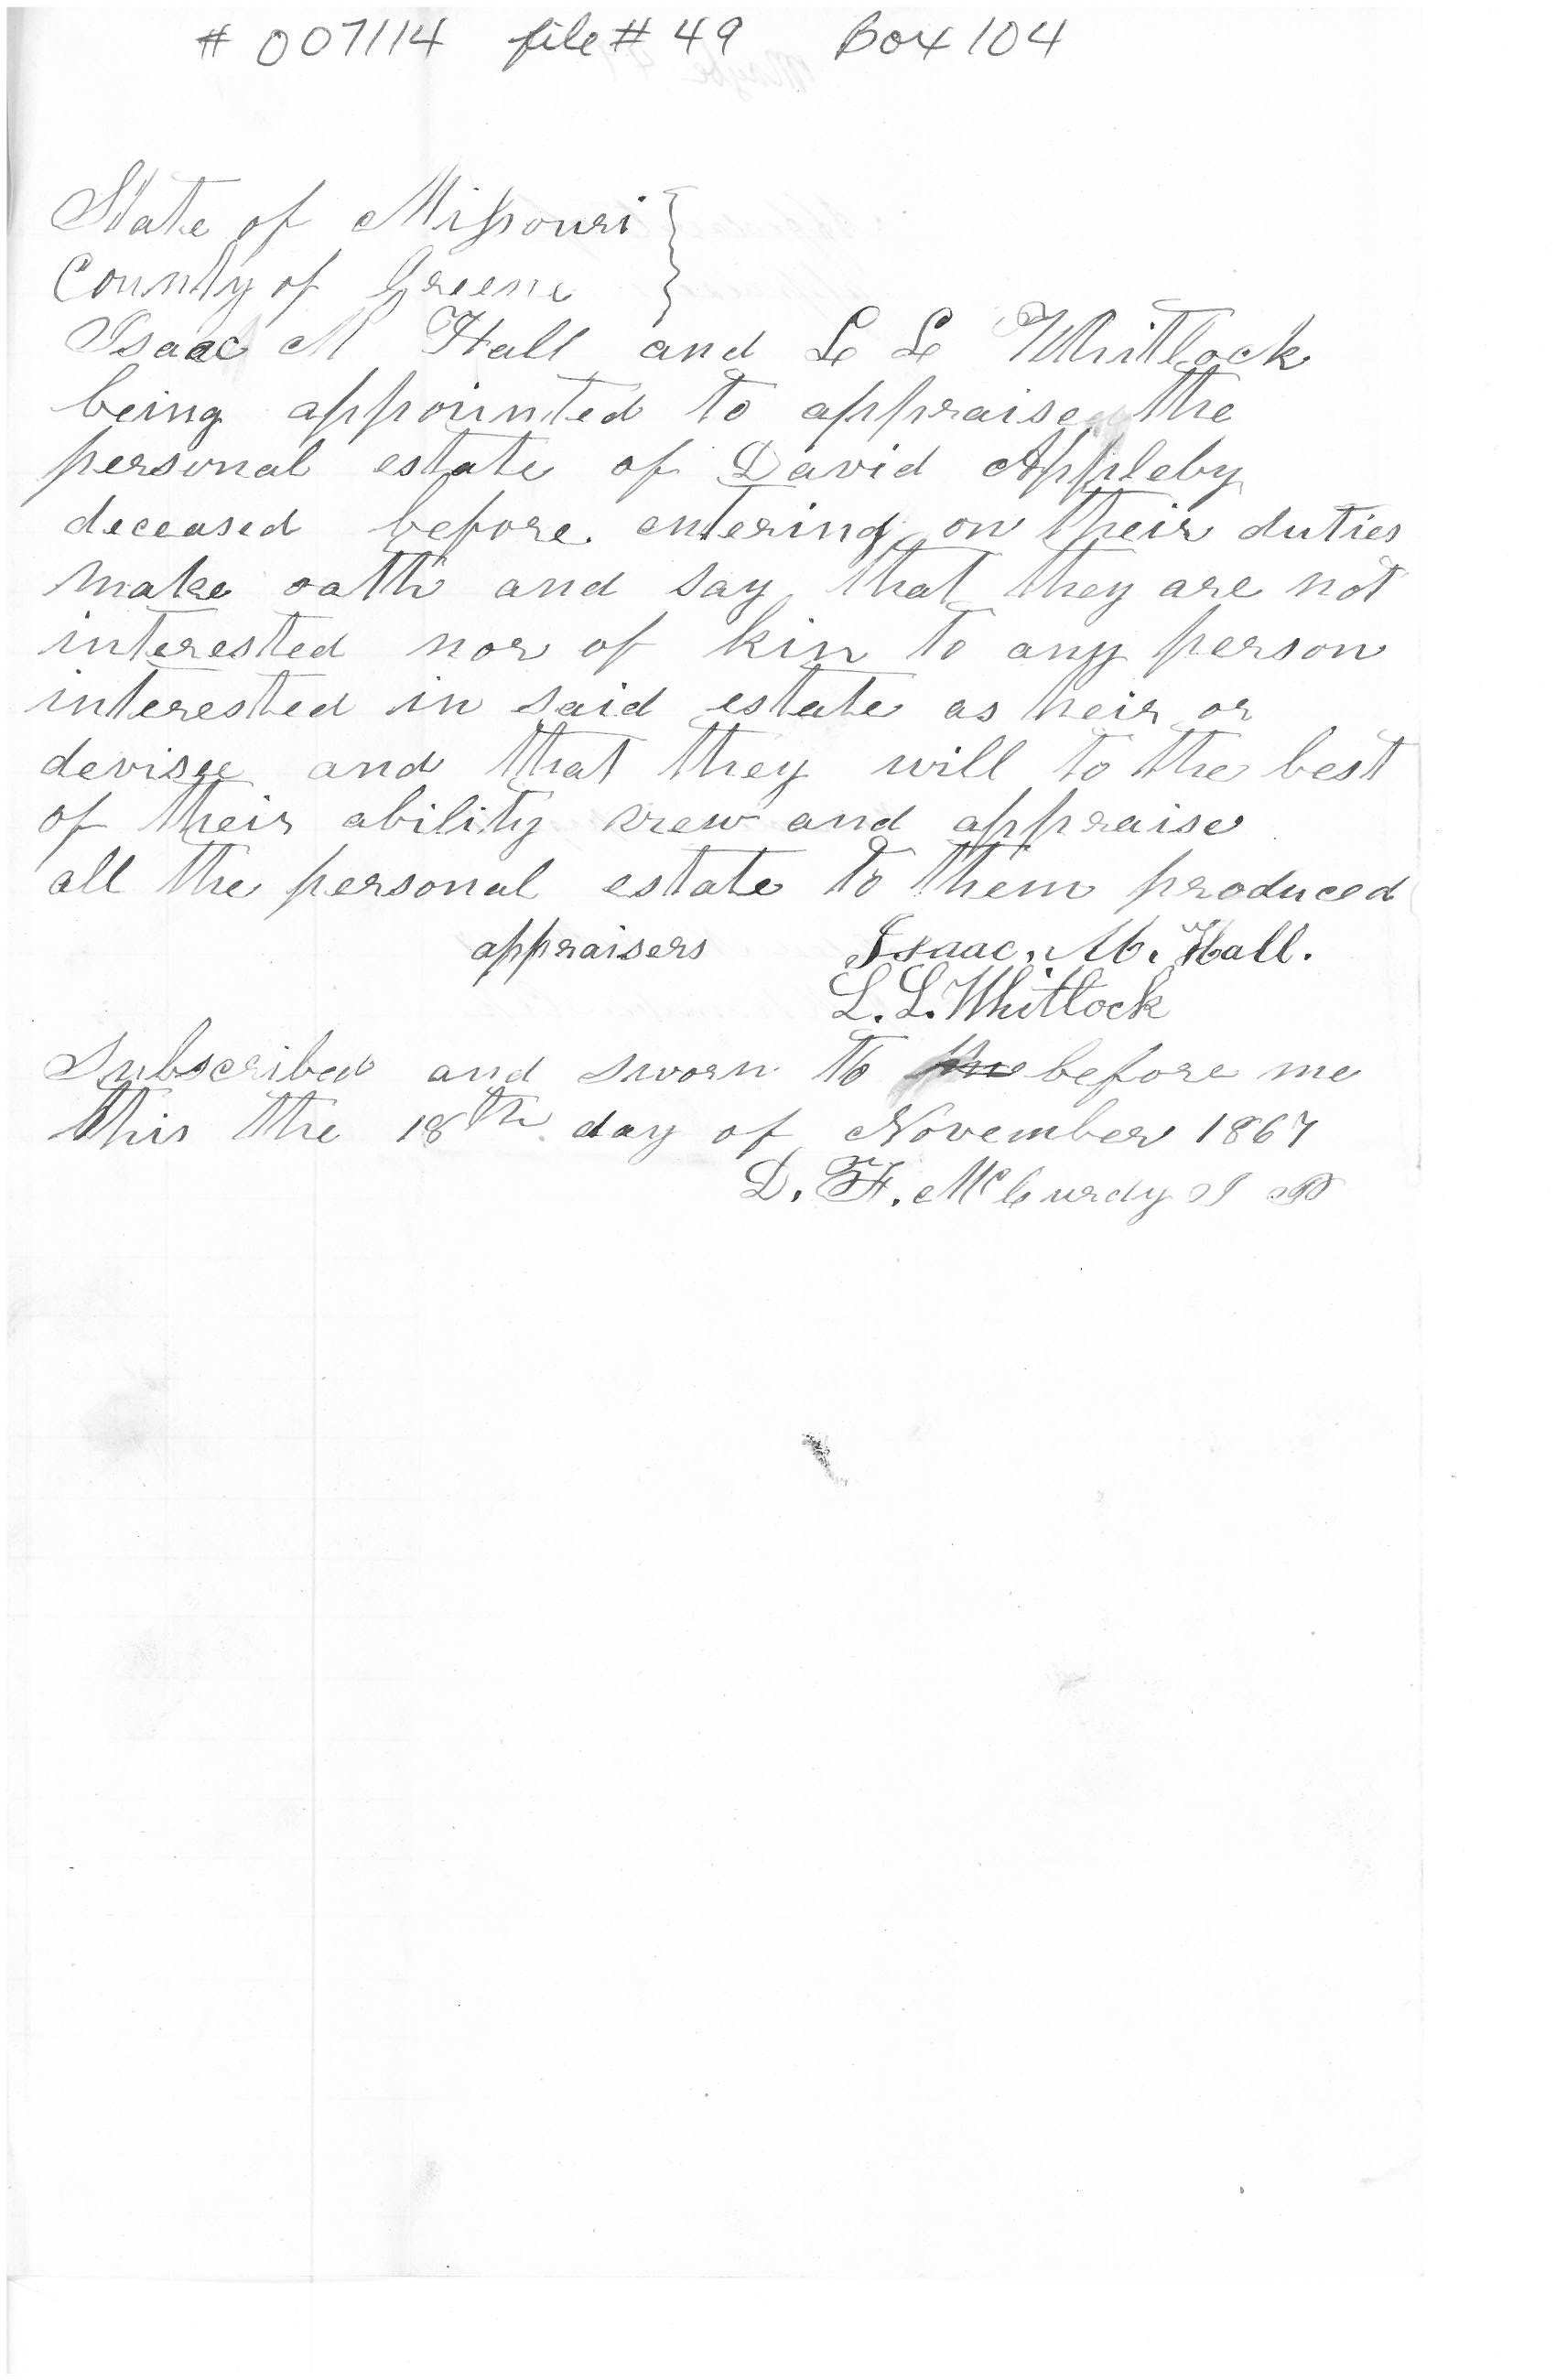 # 007114 file # 49 Box 104
State of Missouri }
County of Greene }
Isaac M Hall and L L Whitlock
being appointed to appraise the
personal estate of David Appleby
deceased before entering on their duties
make oath and say that they are not
interested nor of kin to any person
interested in said estate as heir or
devisee and that they will to the best
of their ability view and appraise
all the personal estate to them produced
appraisers Isaac. M. Hall.
L. L. Whitlock
Subscribed and sworn to before me
this the 18th day of November 1867
D. F. McCurdy J P